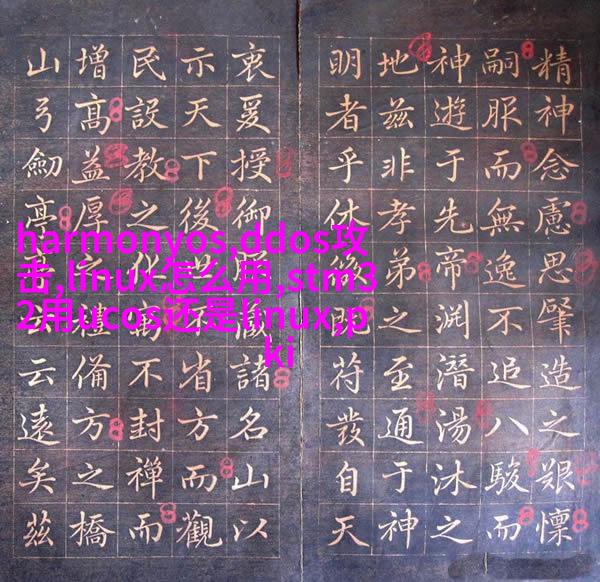 精神念慮思肇造之艱懍
嗣服而無逸不追八駿而
神遊于先帝渊潛湯沐之
地兹非孝弟之至通于神
明者乎休符發自天
衷爰授御諸名山以
示天下後省方而觀
民設教之不封禪而
增髙益厚之禮備方之橋
山弓劒亭云遠矣兹
harmonyos,ddos攻
击,linux怎么用,stm3
2用ucos还是linux,p
ki